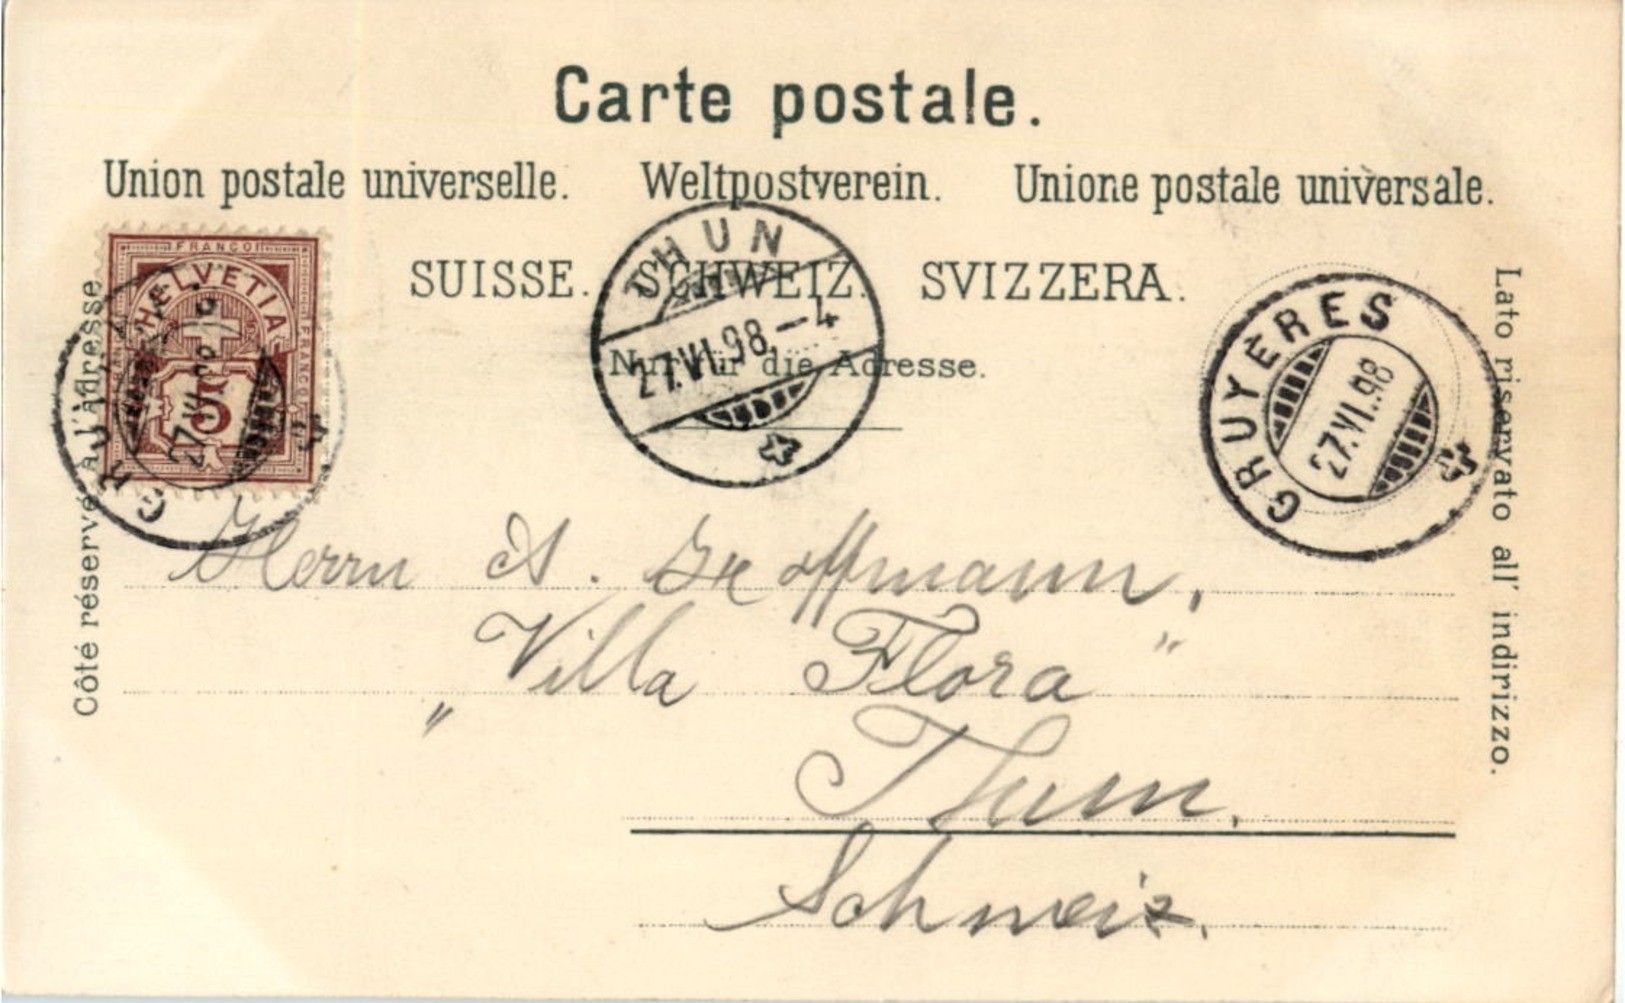 Carte postale.
Union postale universelle. Weltpostverein. Unione postale universale.
SUISSE. SCHWEIZ. SVIZZERA.
Nur für die Adresse.
Côté réservé à l'adresse
Lato riservato all' indirizzo.
FRANCO
HELVETIA
FRANCO
FRANCO
5
GRUYÈRES
27.VI.98
THUN
27.VI.98.–4
GRUYÈRES
27.VI.98
Herrn A. Hoffmann,
"Villa Flora"
Thun.
Schweiz.